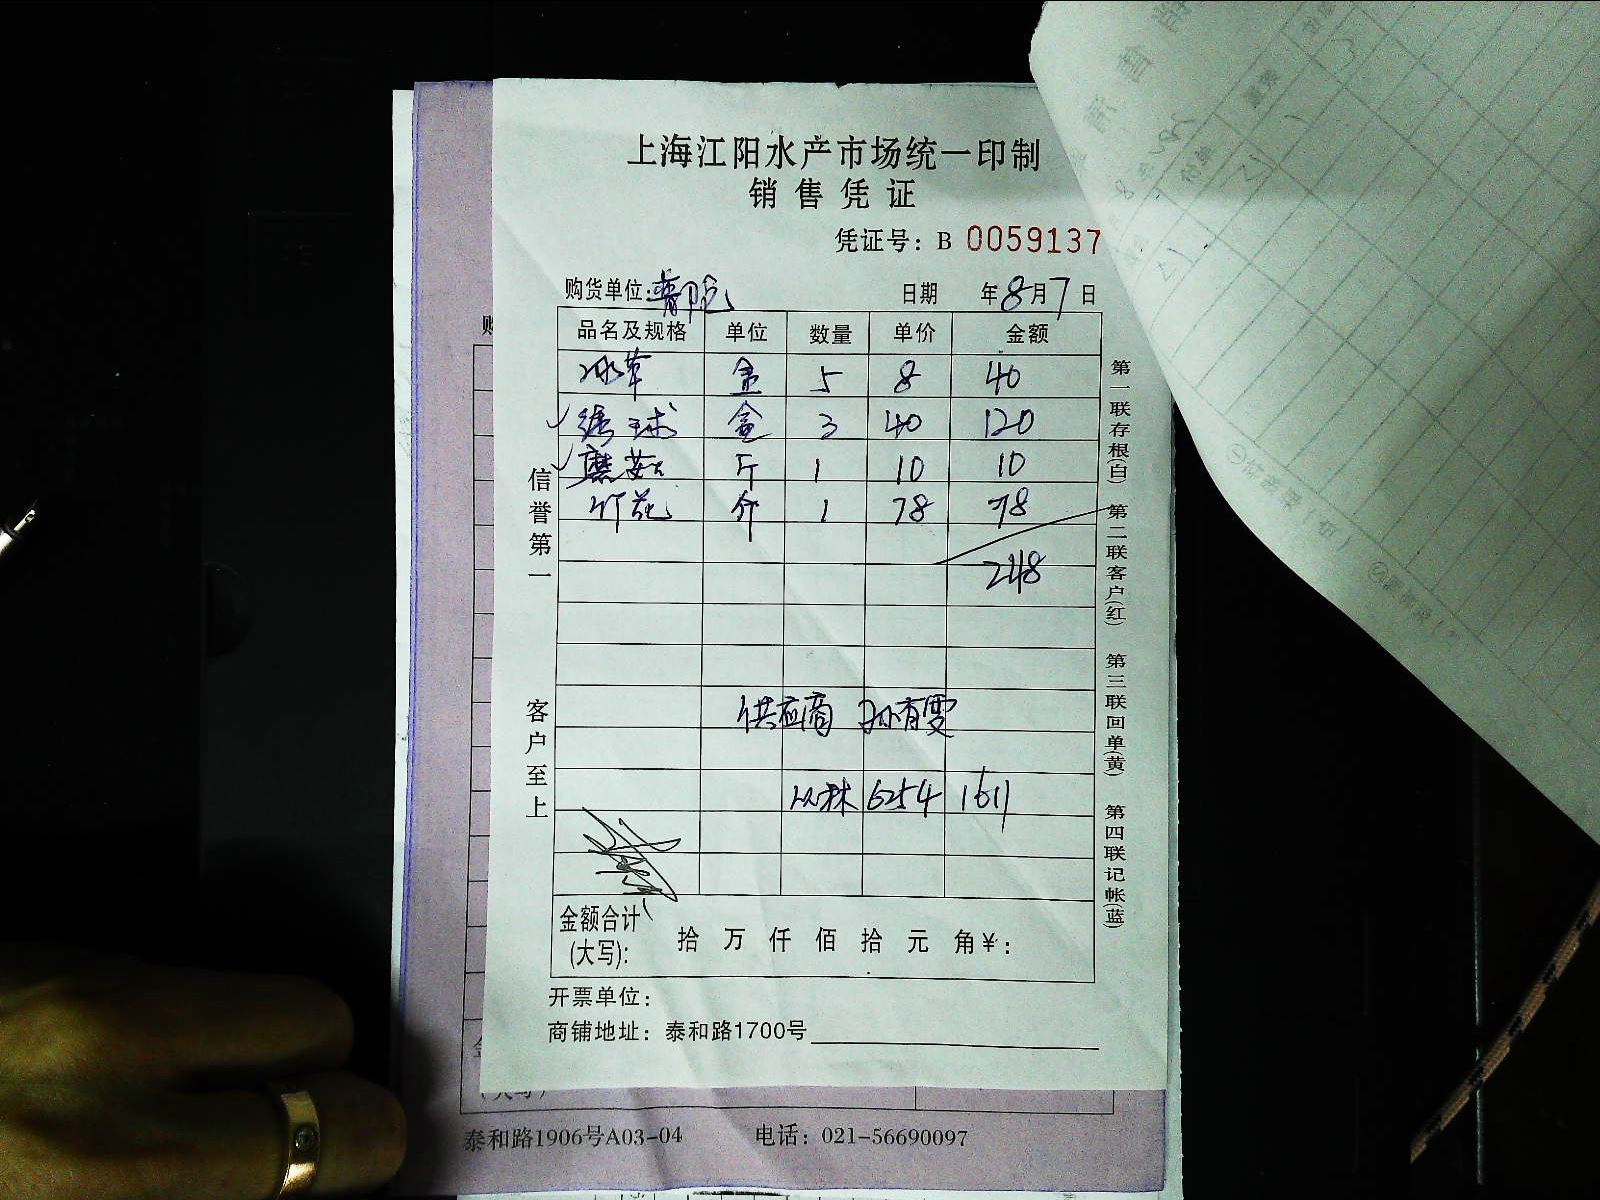 上海江阳水产市场统一印制
销售凭证
凭证号：B 0059137
购货单位： 日期 年8月7日
品名及规格 单位 数量 单价 金额
冰草 盒 5 8 40
盒 3 40 120
蘑菇 斤 1 10 10
竹花 斤 1 78 78
248
供应商 孙有雯
6254 1611
金额合计
(大写)： 拾 万 仟 佰 拾 元 角 ¥：
开票单位：
商铺地址：泰和路1700号
信誉第一
客户至上
第一联存根(白) 第二联客户(红) 第三联回单(黄) 第四联记帐(蓝)
泰和路1906号A03-04 电话：021-56690097